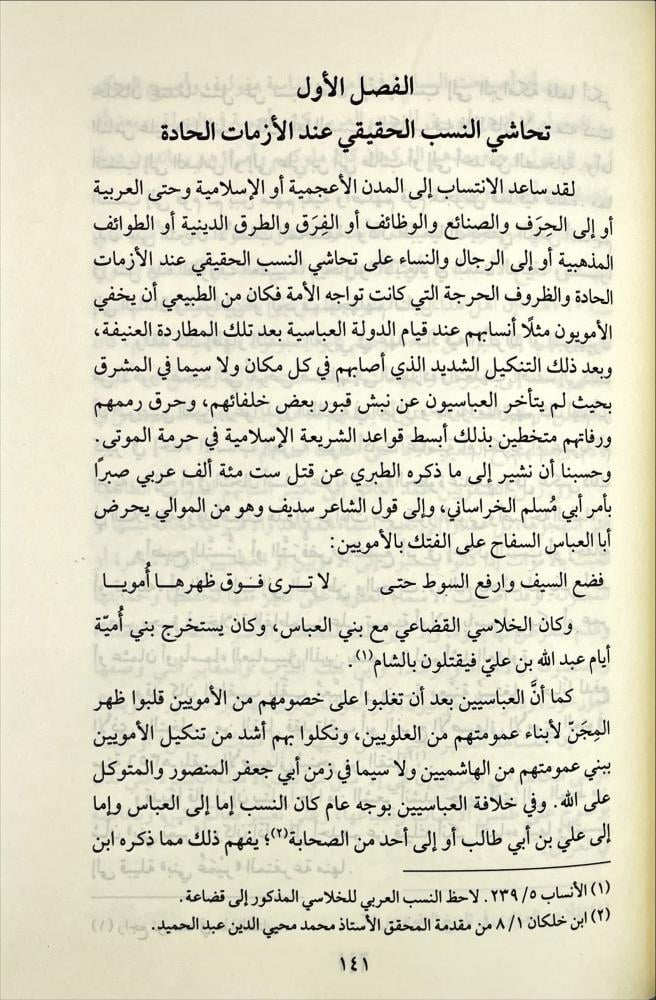 الفصل الأول
تحاشي النسب الحقيقي عند الأزمات الحادة
لقد ساعد الانتساب إلى المدن الأعجمية أو الإسلامية وحتى العربية
أو إلى الحِرَف والصنائع والوظائف أو الفِرَق والطرق الدينية أو الطوائف
المذهبية أو إلى الرجال والنساء على تحاشي النسب الحقيقي عند الأزمات
الحادة والظروف الحرجة التي كانت تواجه الأمة فكان من الطبيعي أن يخفي
الأمويون مثلًا أنسابهم عند قيام الدولة العباسية بعد تلك المطاردة العنيفة،
وبعد ذلك التنكيل الشديد الذي أصابهم في كل مكان ولا سيما في المشرق
بحيث لم يتأخر العباسيون عن نبش قبور بعض خلفائهم، وحرق رممهم
ورفاتهم متخطين بذلك أبسط قواعد الشريعة الإسلامية في حرمة الموتى.
وحسبنا أن نشير إلى ما ذكره الطبري عن قتل ست مئة ألف عربي صبرًا
بأمر أبي مُسلم الخراساني، وإلى قول الشاعر سديف وهو من الموالي يحرض
أبا العباس السفاح على الفتك بالأمويين:
فضع السيف وارفع السوط حتى لا تـرى فـوق ظهرهـا أُمويـا
وكان الخلاسي القضاعي مع بني العباس، وكان يستخرج بني أُميّة
أيام عبد الله بن عليّ فيقتلون بالشام(١).
كما أنَّ العباسيين بعد أن تغلبوا على خصومهم من الأمويين قلبوا ظهر
المِجَنّ لأبناء عمومتهم من العلويين، ونكلوا بهم أشد من تنكيل الأمويين
ببني عمومتهم من الهاشميين ولا سيما في زمن أبي جعفر المنصور والمتوكل
على الله. وفي خلافة العباسيين بوجه عام كان النسب إما إلى العباس وإما
إلى علي بن أبي طالب أو إلى أحد من الصحابة(٢)؛ يفهم ذلك مما ذكره ابن
(١) الأنساب ٥/ ٢٣٩. لاحظ النسب العربي للخلاسي المذكور إلى قضاعة.
(٢) ابن خلكان ١/ ٨ من مقدمة المحقق الأستاذ محمد محيي الدين عبد الحميد.
١٤١